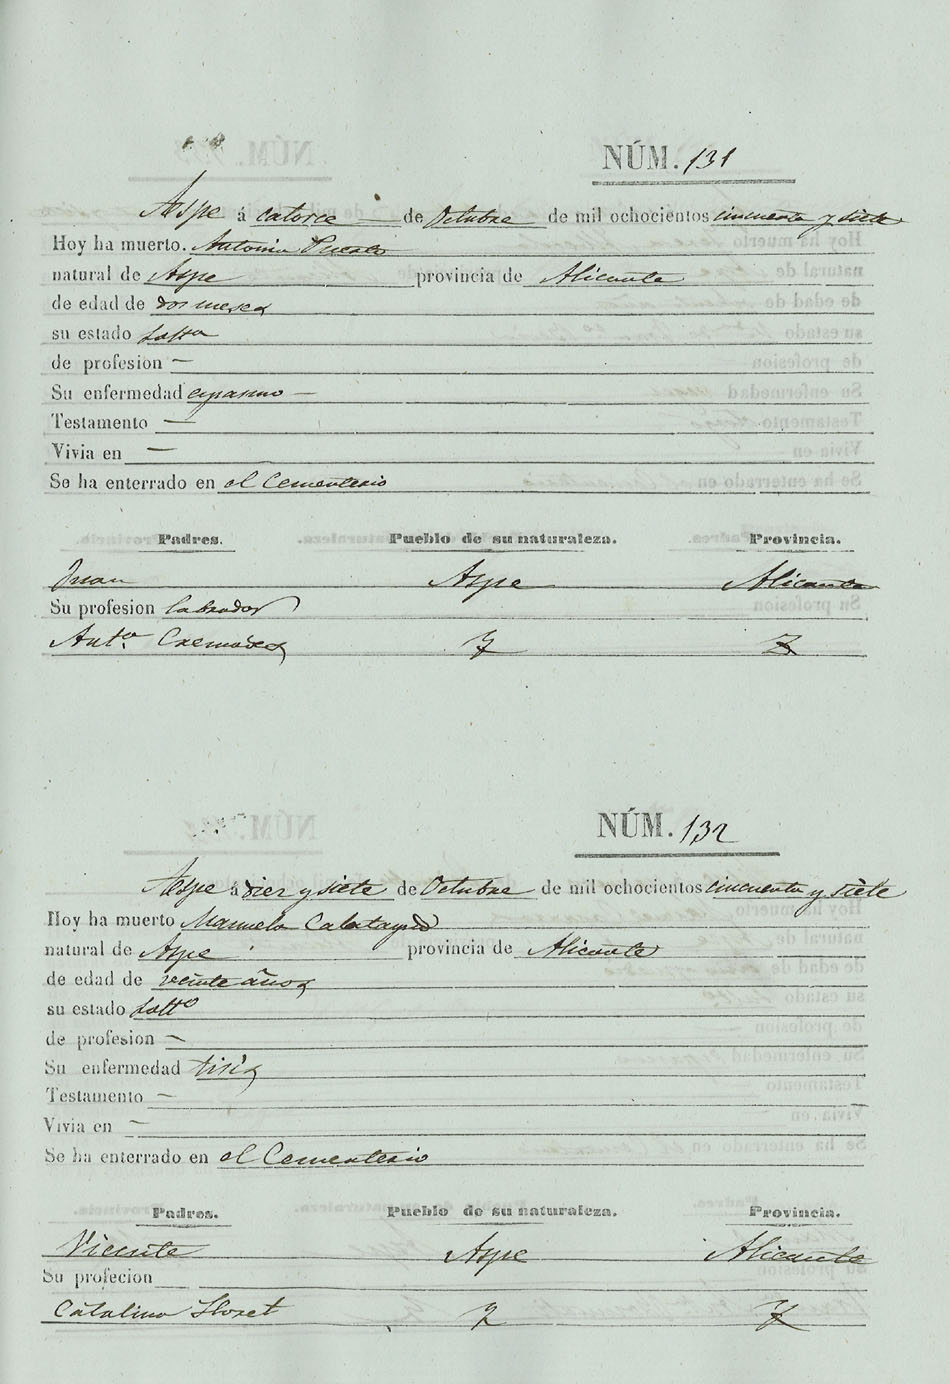 NÚM. 131
Aspe á catorce de Octubre de mil ochocientos cincuenta y siete
Hoy ha muerto. Antonia
natural de Aspe provincia de Alicante
de edad de dos meses
su estado
de profesion —
Su enfermedad espasmo —
Testamento —
Vivia en —
Se ha enterrado en el Cementerio
Padres. Pueblo de su naturaleza. Provincia.
Juan Aspe Alicante
Su profesion labrador
Antª. Cremades
NÚM. 132
Aspe á diez y siete de Octubre de mil ochocientos cincuenta y siete
Hoy ha muerto Manuela Calatayud
natural de Aspe provincia de Alicante
de edad de veinte años
su estado Soltº
de profesion —
Su enfermedad tisis
Testamento —
Vivia en —
Se ha enterrado en el Cementerio
Padres. Pueblo de su naturaleza. Provincia.
Vicente Aspe Alicante
Su profecion
Catalina Lloret